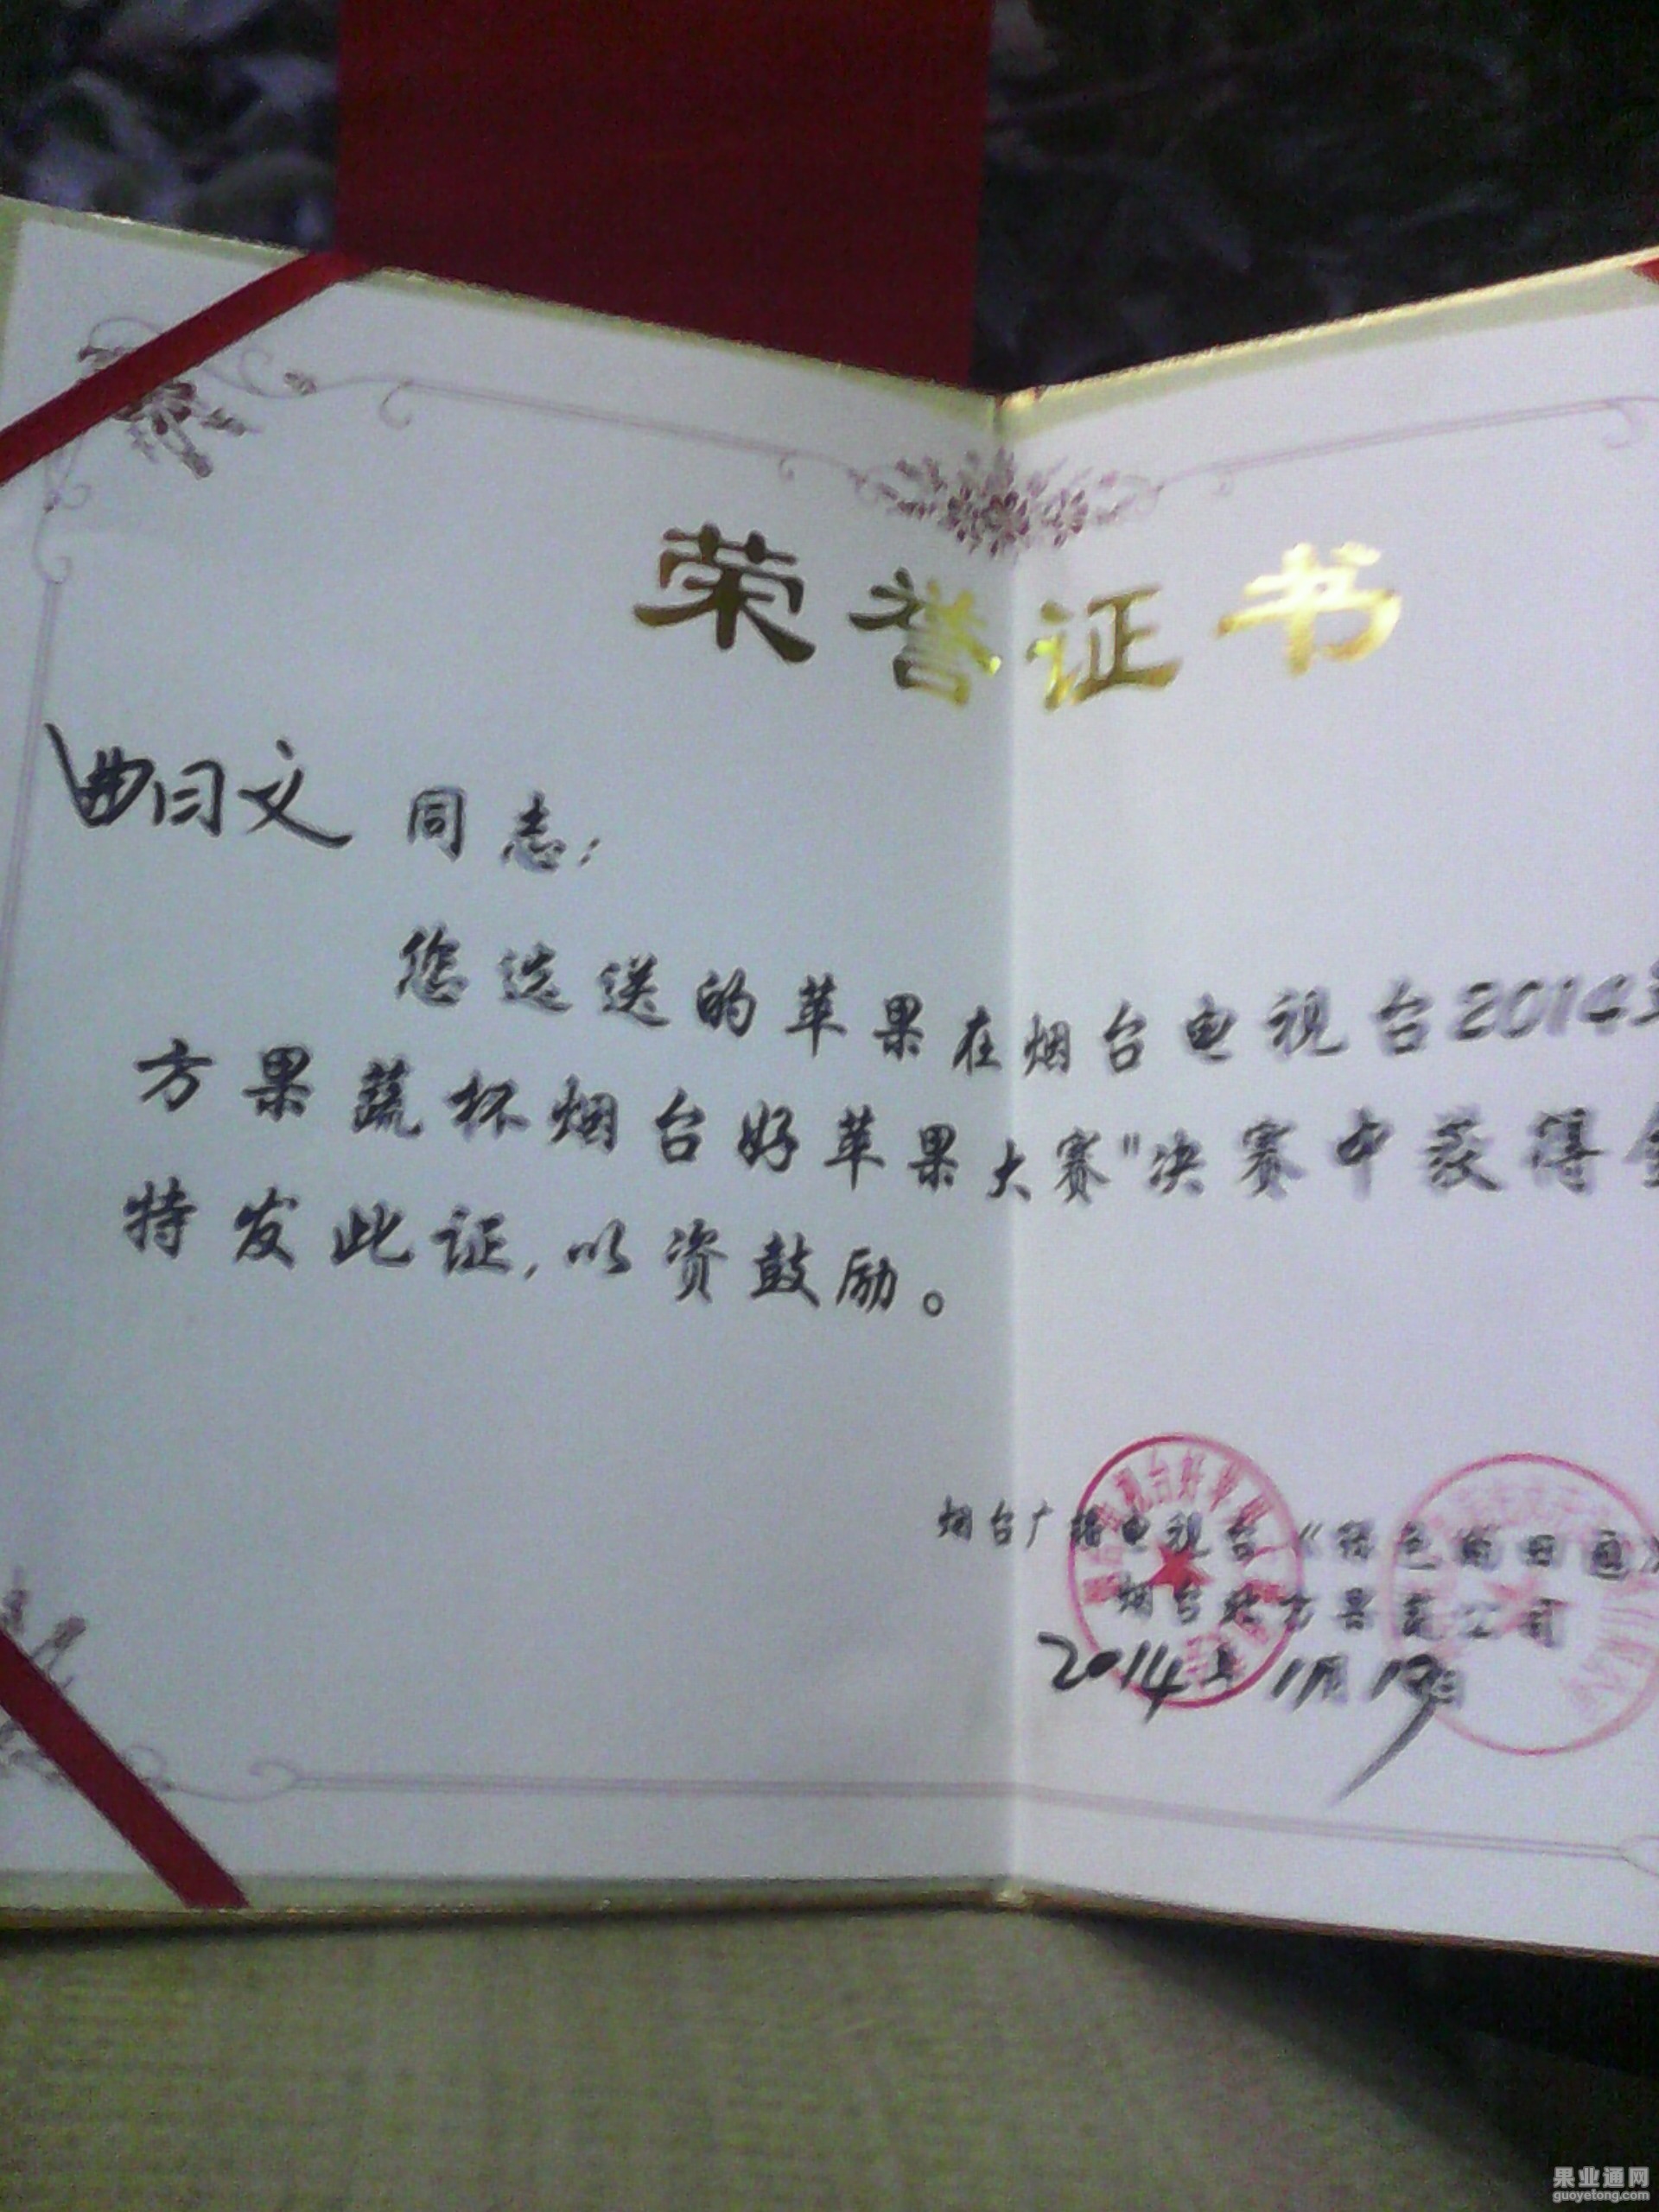 荣誉证书
曲日文 同志:
您选送的苹果在烟台电视台2014年
方果蔬杯烟台好苹果大赛"决赛中获得金
特发此证,以资鼓励。
烟台广播电视台《绿色的田园》
烟台 方果蔬公司
2014年11月1日
果业通网
guoyetong.com